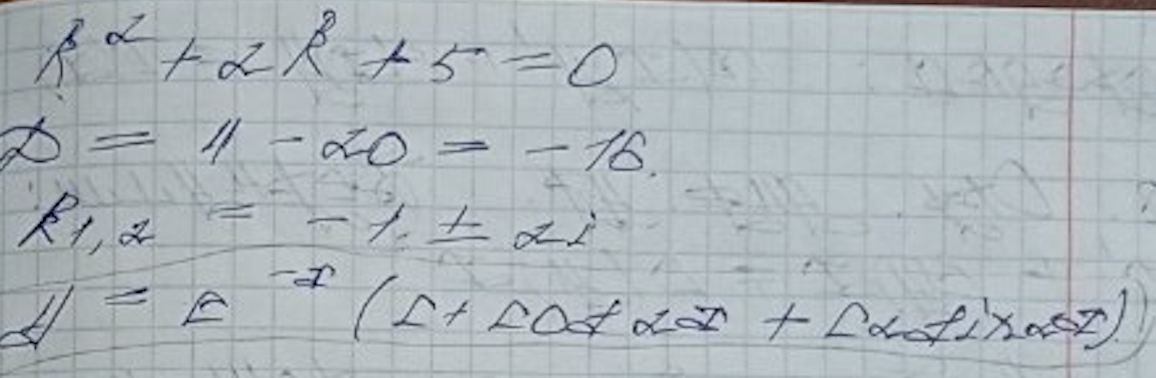 k² + 2k + 5 = 0
D = 4 - 20 = -16.
k1,2 = -1 ± 2i
y = e^-x (C1 cos 2x + C2 sin 2x)